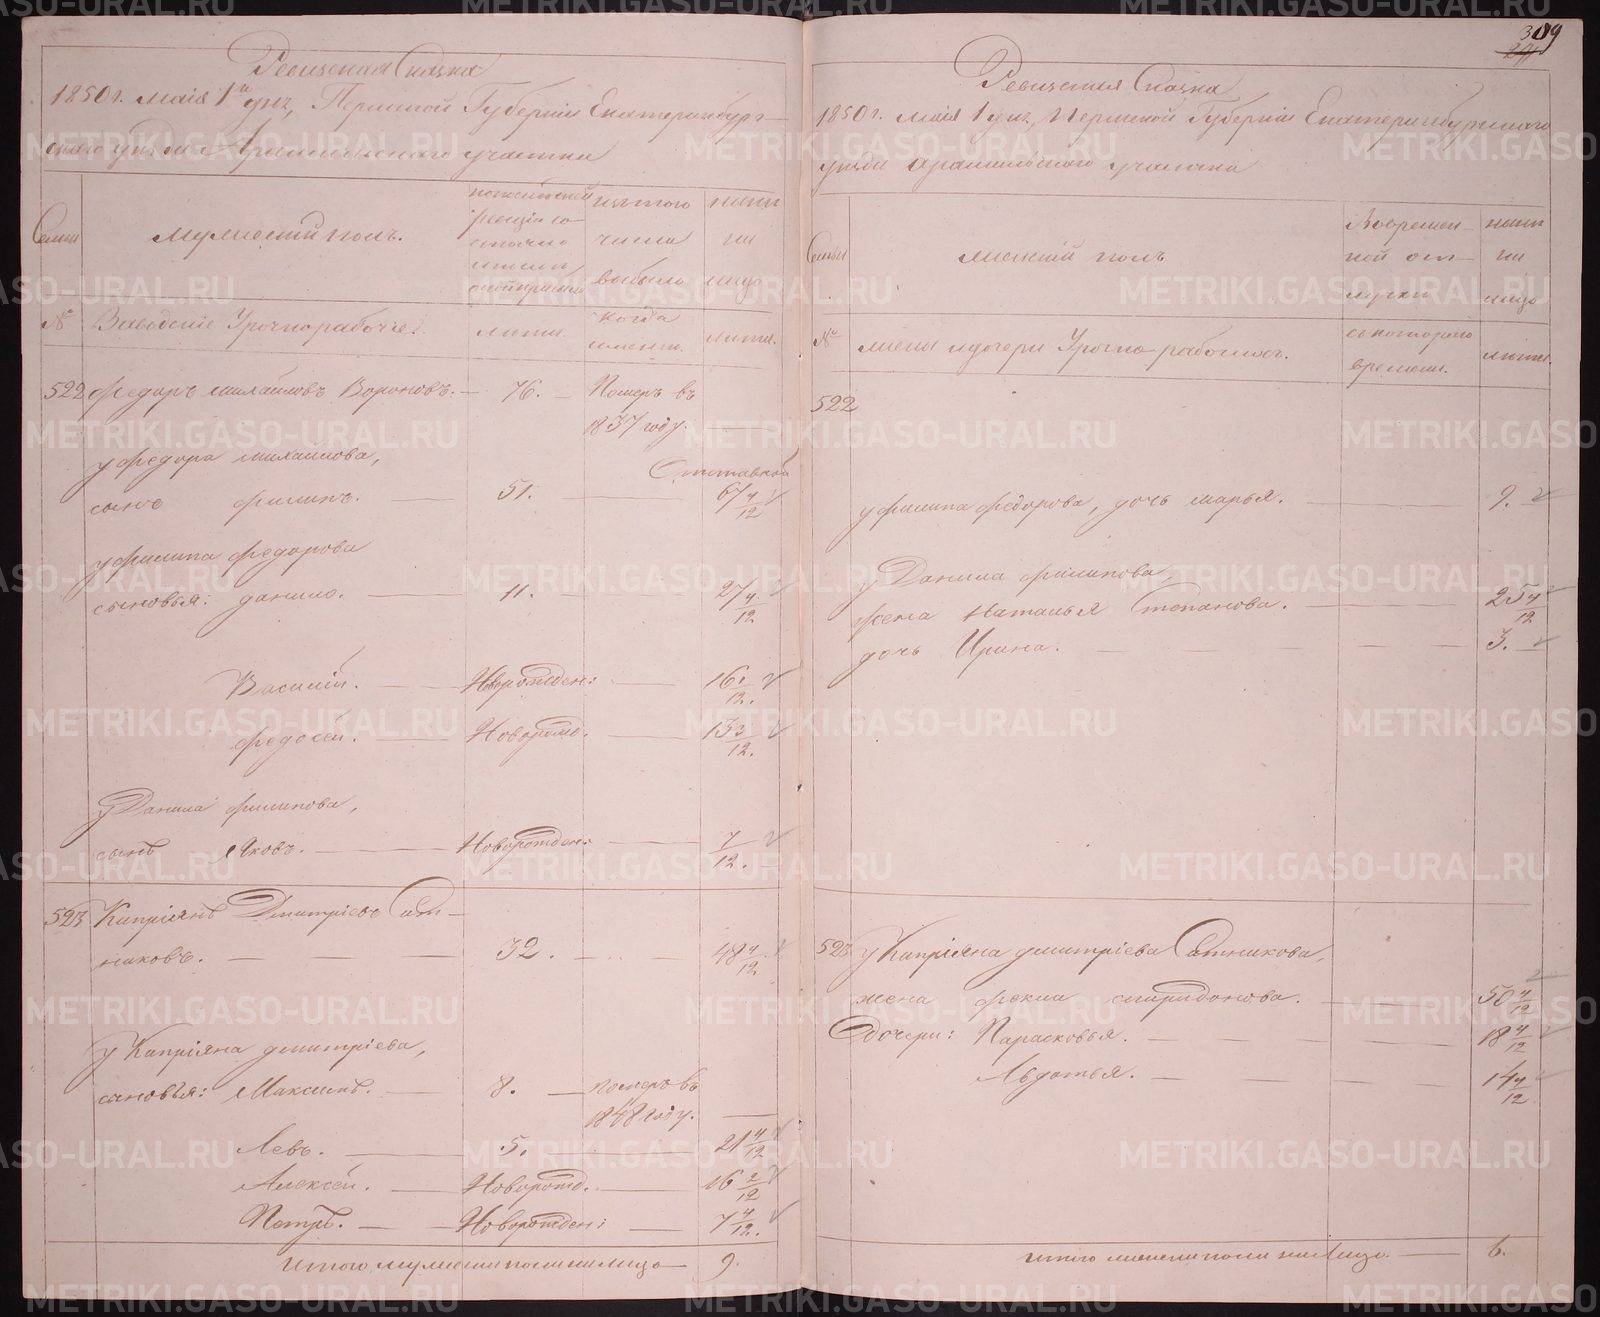 Ревизская Сказка
1850 г. Маія 1го дня, Пермской Губерніи Екатеринбург-
скаго уѣзда Арамильскаго участка
Семьи
Мужескій полъ.
По последней ревизіи состояло и после оной прибыло
Изъ того числа выбыло
Ныне на лицо
№
Заводскіе Урочнорабочіе.
лета.
Когда именно.
лета.
522 Федоръ Михайловъ Вороновъ. — 76. — Померъ въ
1837 году. —
у Федора Михайлова,
Отставной
сынъ Филипъ. — 51. — 67 4/12
у Филипа Федорова
сыновья: Данило. — 11. — 27 4/12
Василій. — Новорожден: — 16 1/12.
Федосей. — Новорожд. — 13 3/12.
у Данила Филипова,
сынъ Яковъ. — Новорожден: — 7/12.
523 Кипріянъ Дмитріевъ Сат-
никовъ. — 32. — 48 4/12
у Кипріяна Дмитріева,
сыновья: Максимъ. — 8. — померъ въ
1848 году. —
Левъ. — 5. — 21 4/12
Алексей. — Новорожд. — 16 2/12
Петръ. — Новорожден: — 7 4/12.
Итого мужеска пола на лицо — 9.
309
Ревизская Сказка
1850 г. Маія 1 дня, Пермской Губерніи Екатеринбургскаго
уѣзда Арамильскаго участка
Семьи
Женскій полъ
Во времен-
ной от-
лучки
Ныне
на
лицо
№
жены и дочери Урочно рабочихъ.
съ котораго
времени.
лета.
522
у Филипа Федорова, дочь Марья. — 9. —
у Данила Филипова,
жена Наталья Степанова. — 25 4/12
дочь Ирина. — 3. —
523 у Кипріяна Дмитріева Сатникова,
жена Фекла Спиридонова. — 50 4/12
Дочери: Парасковья. — 18 4/12
Авдотья. — 14 4/12
Итого женска пола на Лицо. — 6.
METRIKI.GASO-URAL.RU